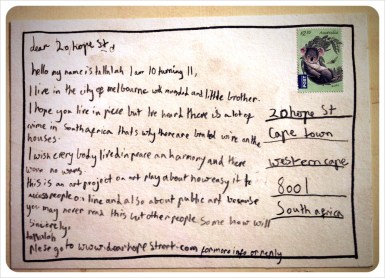 dear 20 hope St
hello my name is tallulah I am 10 turning 11,
I live in the city of melbourne with and little brother.
I hope you live in piece but Its hard there is a lot of
crime in South africa thats why there are wire on the
houses.
I wish every body lived in peace an harmony and there
were no wars
this is an art project on art play about how easy it to
people on line and also about public art because
you may never read this but other people some how will
sincerely,
tallulah
plese go to www.dearhopestreet.com for more info or reply
$2.60
INT POST
20 hope St
Cape town
western cape
8001
South africa